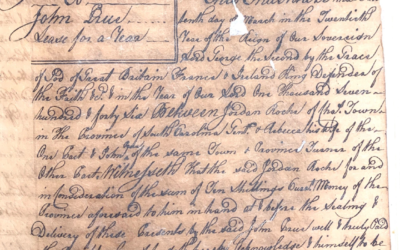 John Drue
Lease for a Year
tenth day of March in the Twentieth
Year of the Reign of our Sovereign
Lord George the Second by the Grace
of God of Great Britain France & Ireland King Defender of
the Faith & in the Year of our Lord One Thousand Seven
hundred & forty Six Between Jordan Roche of Town
in the Province of South Carolina Gent & Rebecca his wife of the
One Part & John of the same Town & Province Turner of the
Other Part Witnesseth that the said Jordan Roche for and
in Consideration of the sum of Ten Shillings Curt Money of the
Province aforesaid to him in hand at & before the Sealing &
Delivery of these Presents by the said John Drue well & truly Paid
acknowledge himself to be